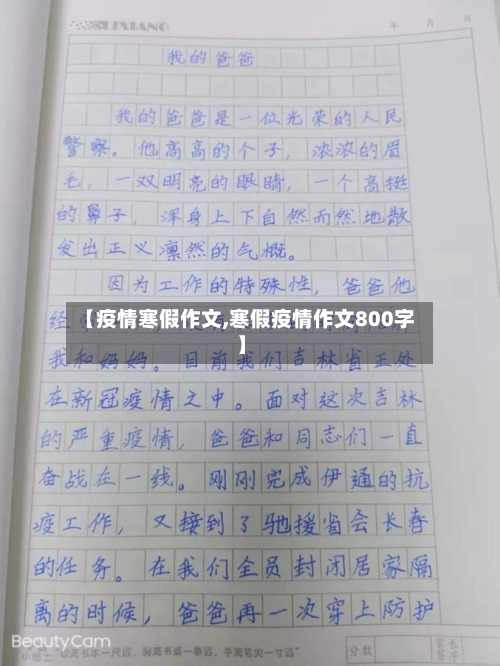 LIXIANG
年 月 日
我的爸爸
我的爸爸是一位光荣的人民
警察。他高高的个子，浓浓的眉
毛，一双明亮的眼睛，一个高挺
的鼻子，浑身上下自然而然地散
发出正义凛然的气概。
因为工作的特殊性，爸爸他
经
【疫情寒假作文,寒假疫情作文800字
】
我和妈妈。目前我们吉林省正处
在新冠疫情之中。面对这次吉林
的严重疫情，爸爸和同志们一直
奋战在一线。刚刚完成伊通的抗
疫工作，又接到了驰援省会长春
的任务。在我们全员封闭居家隔
离的时候，爸爸再一次穿上防护
BeautyCam
小贴士 眼离书本一尺远，胸离书桌一拳远，手离笔尖一寸远
分数 家长签字